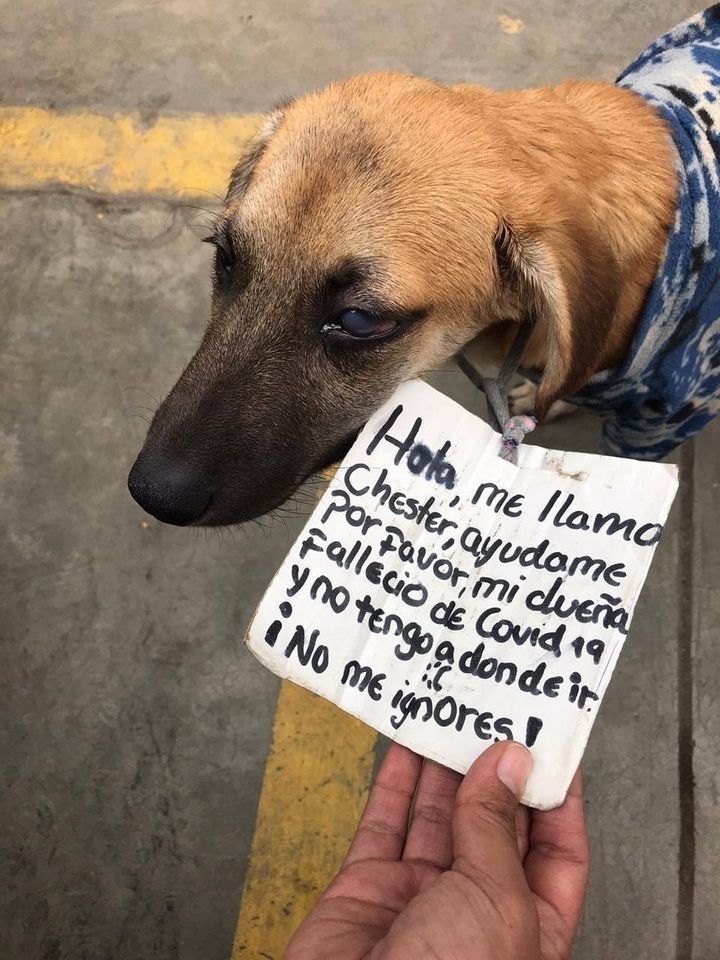 Hola, me llamo
Chester, ayudame
Por Favor, mi dueña
Fallecio de Covid 19
y no tengo a donde ir.
:(
¡No me ignores!